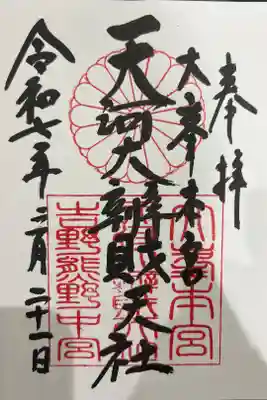 奉拝
大峯本宮
天河大辨財天社
令和七年二月二十一日
大峯本宮
吉野熊野中宮